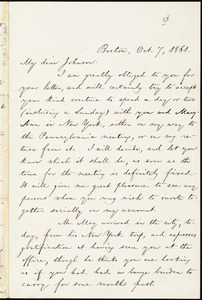 Boston, Oct. 7, 1861.
My dear Johnson:
I am greatly obliged to you for
your letter, and will certainly try to accept
your kind overture to spend a day or two
(including a Sunday) with you and Mary
Ann in New York, either on my way to
the Pennsylvania meeting, or on my re-
turn from it. I will decide, and let you
know which it shall be, as soon as the
time for the meeting is definitely fixed.
It will give me great pleasure to see any
person whom you may wish to invite to-
gether socially on my account.
Mr. May arrived in the city, to-
day, from his New York trip, and expresses
gratification at having seen you at the
office, though he thinks you are looking
as if you had had a large burden to
carry for some months past.